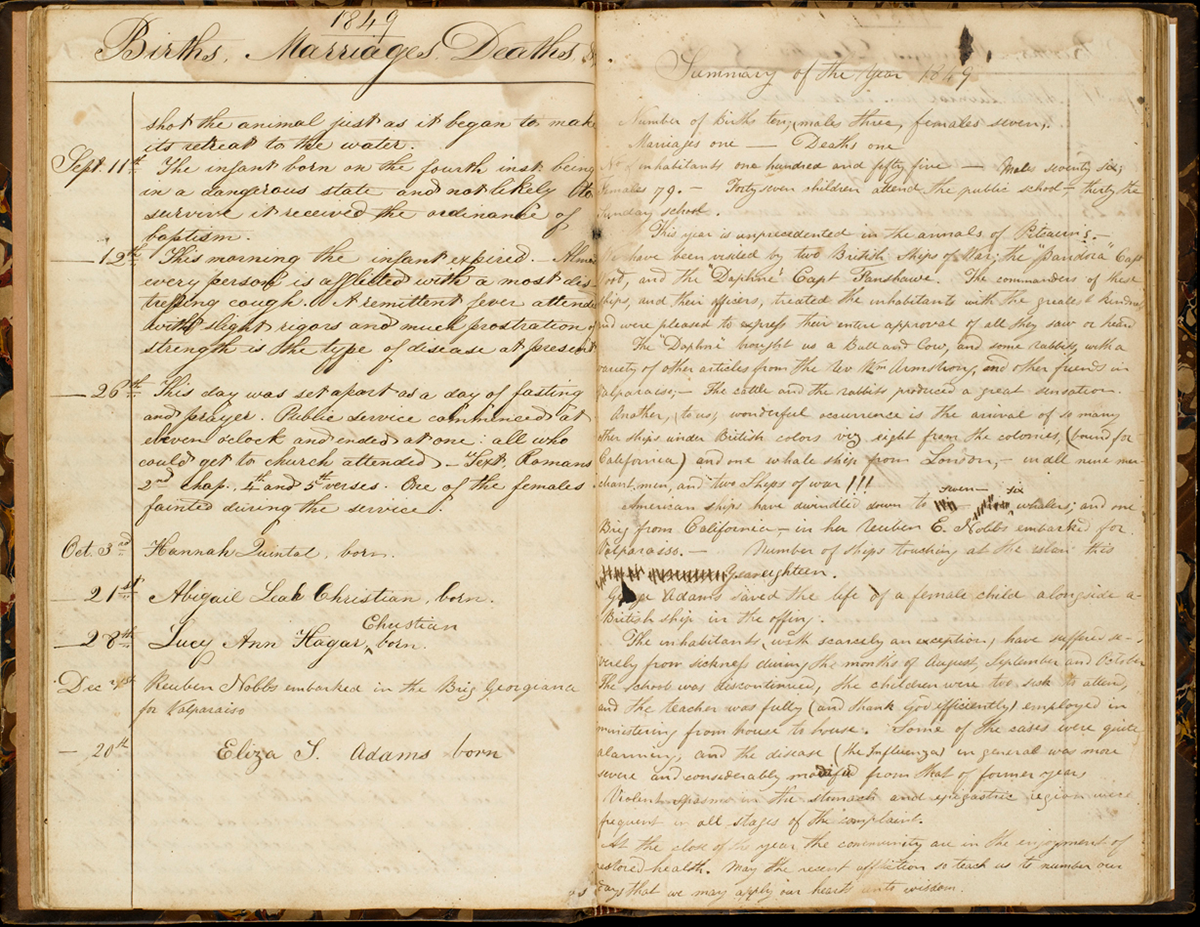 1849
Births, Marriages, Deaths, &
shot the animal just as it began to make
its retreat to the water.
Sept. 11th The infant born on the fourth inst. being
in a dangerous state and not likely to
survive it received the ordinance of
baptism.
— 12th This morning the infant expired. Almost
every person is afflicted with a most dis-
tressing cough. A remittent fever attended
with slight rigors and much prostration of
strength is the type of disease at present
— 26th This day was set apart as a day of fasting
and prayer. Public service commenced at
eleven o'clock and ended at one: all who
could get to church attended — Text. Romans
2nd chap. 4th and 5th verses. One of the females
fainted during the service.
Oct. 3rd Hannah Quintal, born.
— 21st Abigail Leah Christian, born.
Christian
— 28th Lucy Ann Hagar, born.
Dec Reuben Nobbs embarked in the Brig Georgiana
for Valparaiso
— 20th Eliza S. Adams born
Summary of the Year 1849
Number of Births ten; (males three, females seven,
Marriages one — Deaths one
No inhabitants one hundred and fifty five — Males seventy six;
Females 79. — Forty seven children attend the public school — thirty the
Sunday school.
This year is unprecedented in the annals of Pitcairns. —
We have been visited by two British Ships of War; the "Pandora" Capt
Wood, and the "Daphne" Capt Fanshawe. The commanders of these
ships, and their officers, treated the inhabitants with the greatest kindness
and were pleased to express their entire approval of all they saw or heard
The "Daphne" brought us a Bull and Cow, and some rabbits, with a
variety of other articles from the Rev Wm Armstrong, and other friends in
Valparaiso; — The cattle and the rabbits produced a great sensation.
Another, (to us,) wonderful occurrence is the arrival of so many
other ships under British colors viz eight from the colonies, (bound for
California) and one whale ship from London, — in all nine mer-
chant men, and two Ships of war!!!
seven — six
American ships have dwindled down to whalers; and one
Brig from California — in her Reuben E. Nobbs embarked for
Valparaiso. — Number of ships touching at the islan this
Year eighteen.
George Adams saved the life of a female child alongside a
British ship in the offing.
The inhabitants, with scarcely an exception, have suffered se-
verely from sickness during the months of August, September and October
The school was discontinued, the children were too sick to attend,
and the teacher was fully (and thank God efficiently) employed in
ministering from house to house. Some of the cases were quite
alarming, and the disease (the Influenza) in general was more
severe and considerably modified from that of former years
Violent spasms in the stomach and epigastric region were
frequent in all stages of the complaint.
At the close of the year the community are in the enjoyment of
restored health. May the recent affliction so teach us to number our
days that we may apply our hearts unto wisdom.